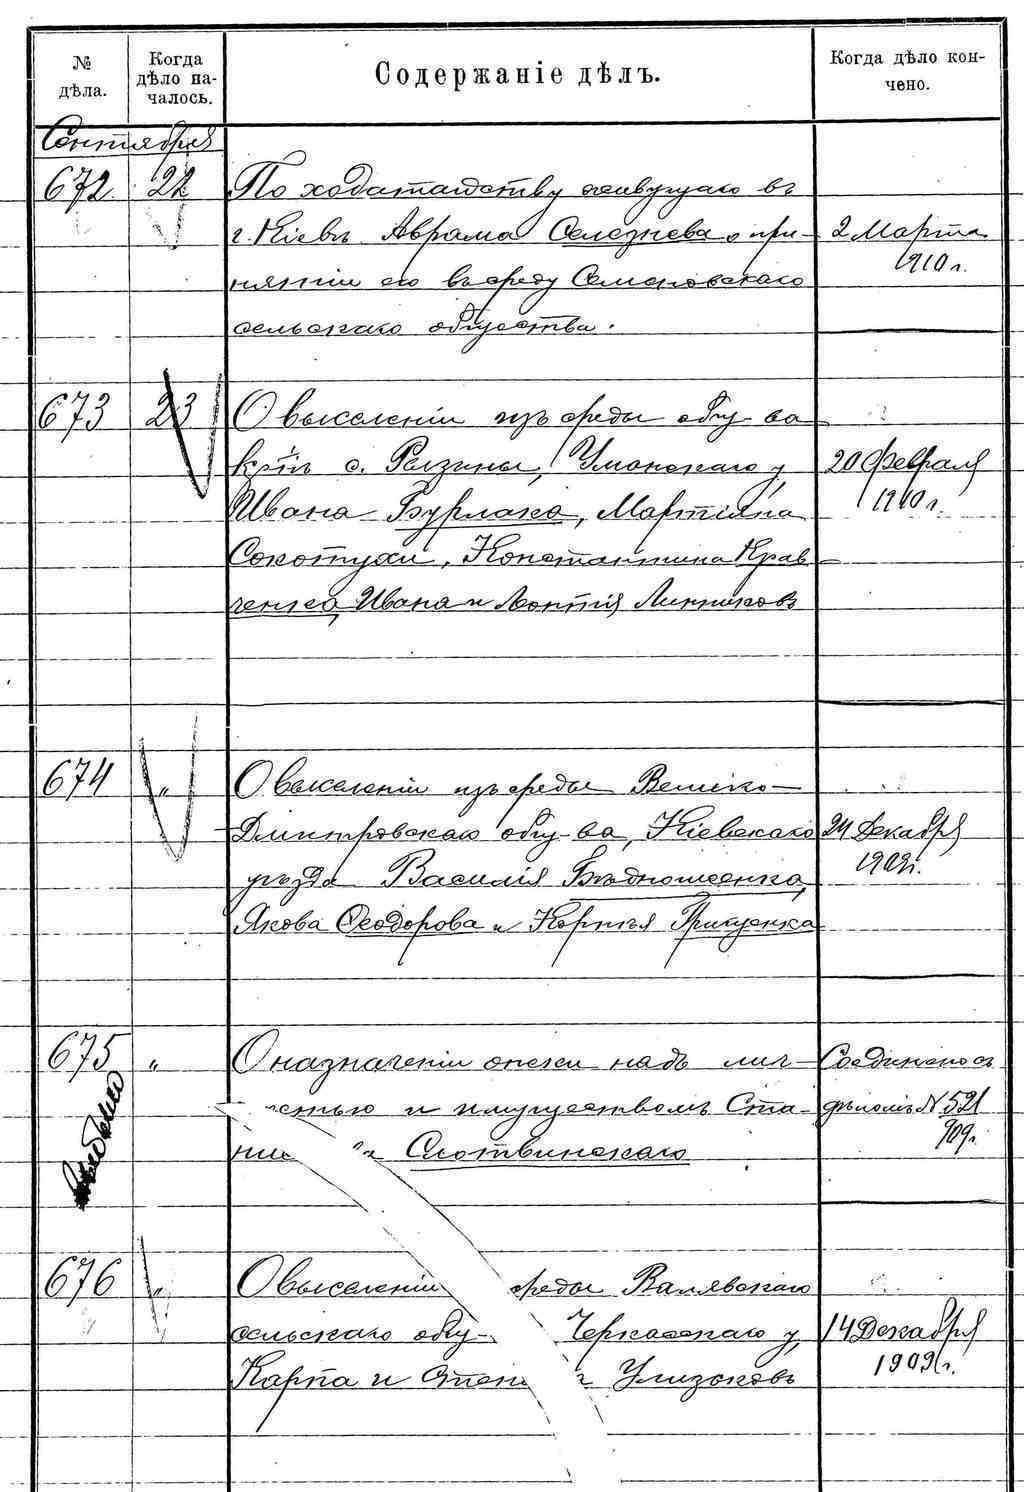 № дѣла.
Когда дѣло на-чалось.
Содержаніе дѣлъ.
Когда дѣло кон-чено.
Сентября
672 22 По ходатайству живущаго въ
г. Кіевѣ Аврама Селезнева о при- 2 Марта
нятіи его въ среду Семеновскаго 1910 г.
сельскаго общества.
673 23 О выселеніи изъ среды общ-ва
кр-нъ с. Рызины, Уманскаго у, 20 Февраля
Ивана Бурлака, Мартіяна 1910 г.
Сокотухи, Константина Крав-
ченка, Ивана и Леонтія Линниковъ
674 „ О выселеніи изъ среды Велико-
Дмитровскаго общ-ва, Кіевскаго 24 Декабря
уѣзда Василія Бѣдношеенка, 1909 г.
Якова Ѳеодорова и Корнѣя Грищенка
675 „ О назначеніи опеки надъ лич- Соединено съ
ностью и имуществомъ Ста- дѣломъ № 521
ни Слотвинскаго 909 г.
676 „ О выселеніи среды Валявскаго
сельскаго общ- Черкасскаго у, 14 Декабря
Карпа и Степ Улизковъ 1909 г.